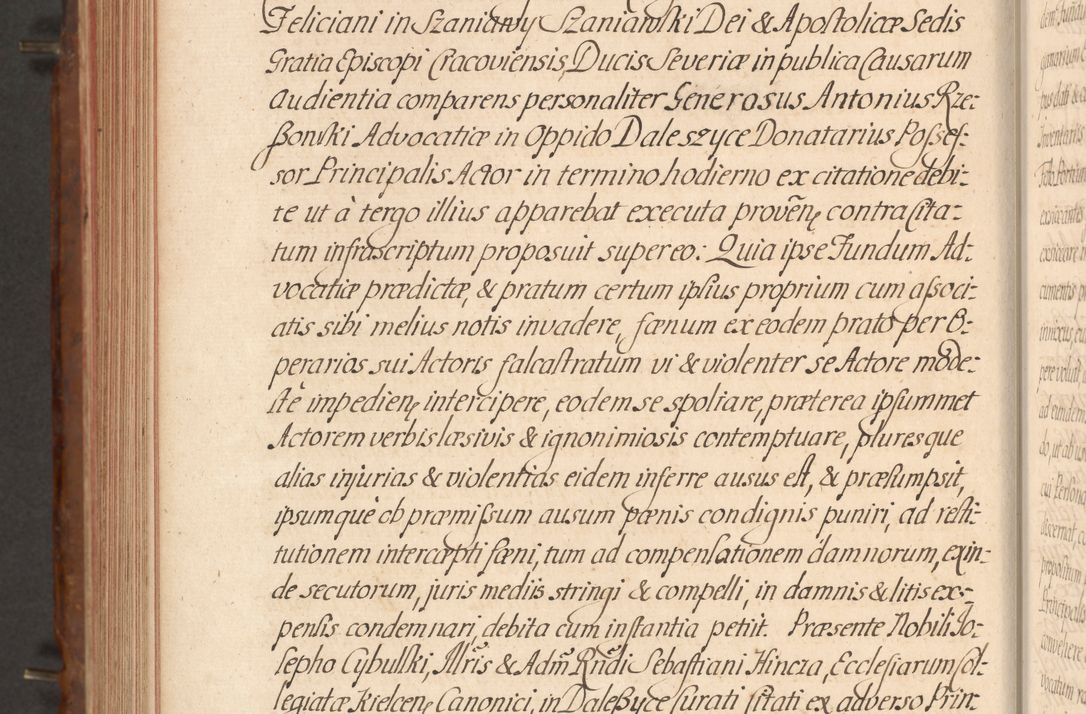 Feliciani in Szaniawy Szaniawski Dei & Apostolicæ Sedis
Gratia Episcopi Cracoviensis, Ducis Severiæ in publica Causarum
Audientia comparens personaliter Generosus Antonius Rze-
ßowski Advocatiæ in Oppido Daleszyce Donatarius Poßes-
sor Principalis Actor in termino hodierno ex citatione debi-
te ut à tergo illius apparebat executa provēnę contra Cita-
tum infrascriptum proposuit super eo: Quia ipse Fundum Ad-
vocatiæ prædictæ, & pratum certum ipsius proprium cum aßoci-
atis sibi melius notis invadere, fænum ex eodem prato per O-
perarios sui Actoris falcastratum vi & violenter se Actore mode-
stè impedienę intercipere, eodem se spoliare, præterea ipsummet
Actorem verbis læsivis & ignonimiosis contemptuare, pluresque
alias injurias & violentias eidem inferre ausus est, & præsumpsit,
ipsumquè ob præmißum ausum pænis condignis puniri, ad resti-
tutionem intercæpti fæni, tum ad compensationem damnorum, exin-
de secutorum, juris mediis stringi & compelli, in damnis & litis ex-
pensis condemnari, debita cum instantia petiit. Præsente Nobili Jo-
sepho Cybulski, Illris & Adm Rndi Sebastiani Hincza, Ecclesiarum Col-
legiatæ Kielcenę Canonici, in Daleßyce Curati Citati ex adverso Prin-